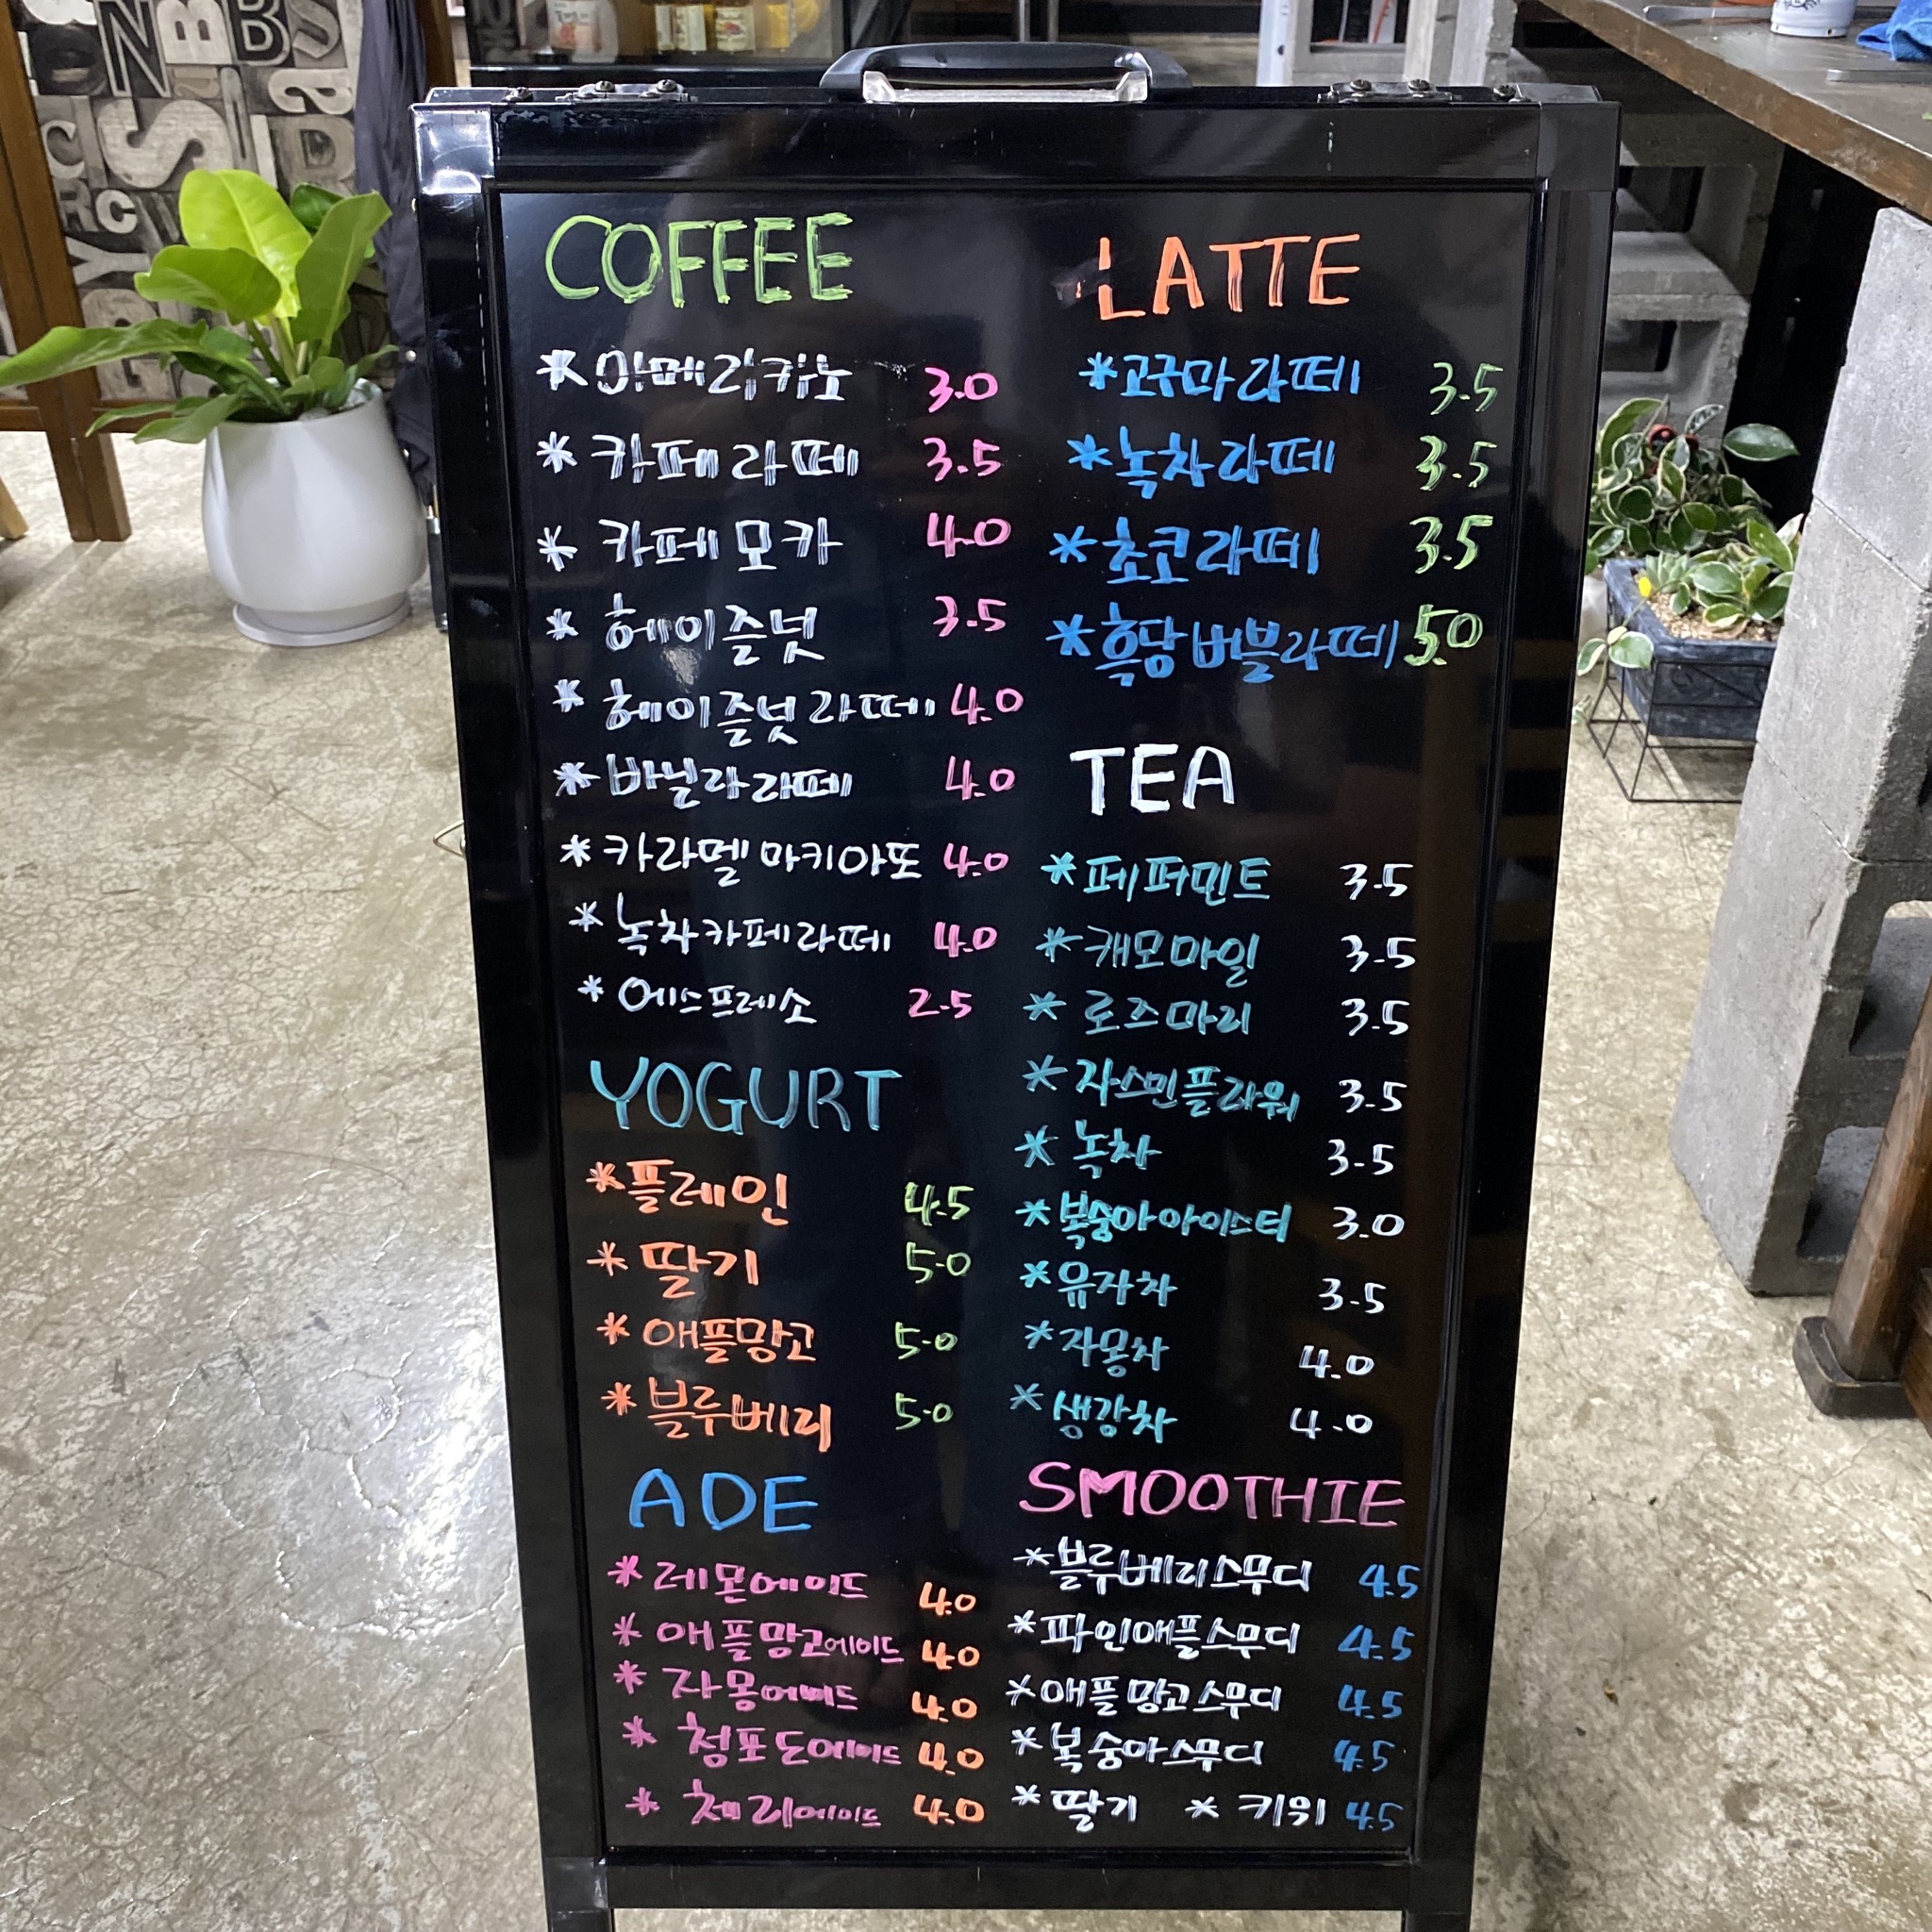 COFFEE
* 아메리카노 3.0
* 카페라떼 3.5
* 카페모카 4.0
* 헤이즐넛 3.5
* 헤이즐넛라떼 4.0
* 바닐라라떼 4.0
* 카라멜마키아또 4.0
* 녹차카페라떼 4.0
* 에스프레소 2.5
YOGURT
* 플레인 4.5
* 딸기 5.0
* 애플망고 5.0
* 블루베리 5.0
ADE
* 레몬에이드 4.0
* 애플망고에이드 4.0
* 자몽에이드 4.0
* 청포도에이드 4.0
* 체리에이드 4.0
LATTE
* 고구마라떼 3.5
* 녹차라떼 3.5
* 초코라떼 3.5
* 흑당버블라떼 5.0
TEA
* 페퍼민트 3.5
* 캐모마일 3.5
* 로즈마리 3.5
* 자스민플라워 3.5
* 녹차 3.5
* 복숭아아이스티 3.0
* 유자차 3.5
* 자몽차 4.0
* 생강차 4.0
SMOOTHIE
* 블루베리스무디 4.5
* 파인애플스무디 4.5
* 애플망고스무디 4.5
* 복숭아스무디 4.5
* 딸기 * 키위 4.5